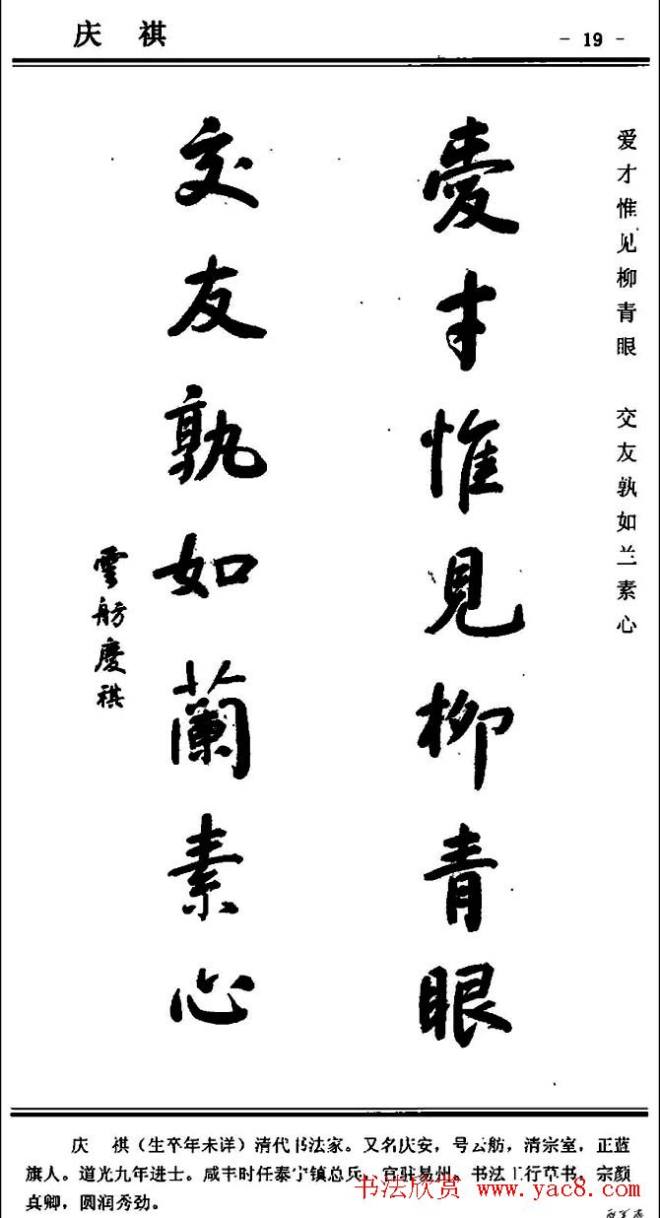 庆 祺
- 19 -
爱才惟见柳青眼 交友孰如兰素心
愛才惟見柳青眼
交友孰如蘭素心
雲舫慶祺
庆 祺（生卒年未详）清代书法家。又名庆安，号云舫，清宗室，正蓝
旗人。道光九年进士。咸丰时任泰宁镇总兵，官驻易州。书法工行草书，宗颜
真卿，圆润秀劲。
书法欣赏 www.yac8.com